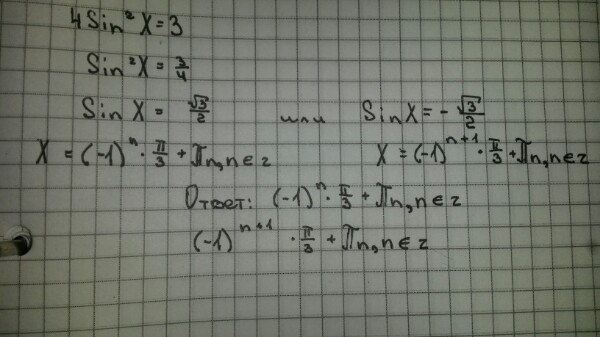 4Sin²X=3
Sin²X=3/4
Sin X = √3/2 или SinX=-√3/2
X = (-1)ⁿ · π/3 + πn, n∈z X = (-1)ⁿ⁺¹ · π/3 + πn, n∈z
Ответ: (-1)ⁿ · π/3 + πn, n∈z
(-1)ⁿ⁺¹ · π/3 + πn, n∈z